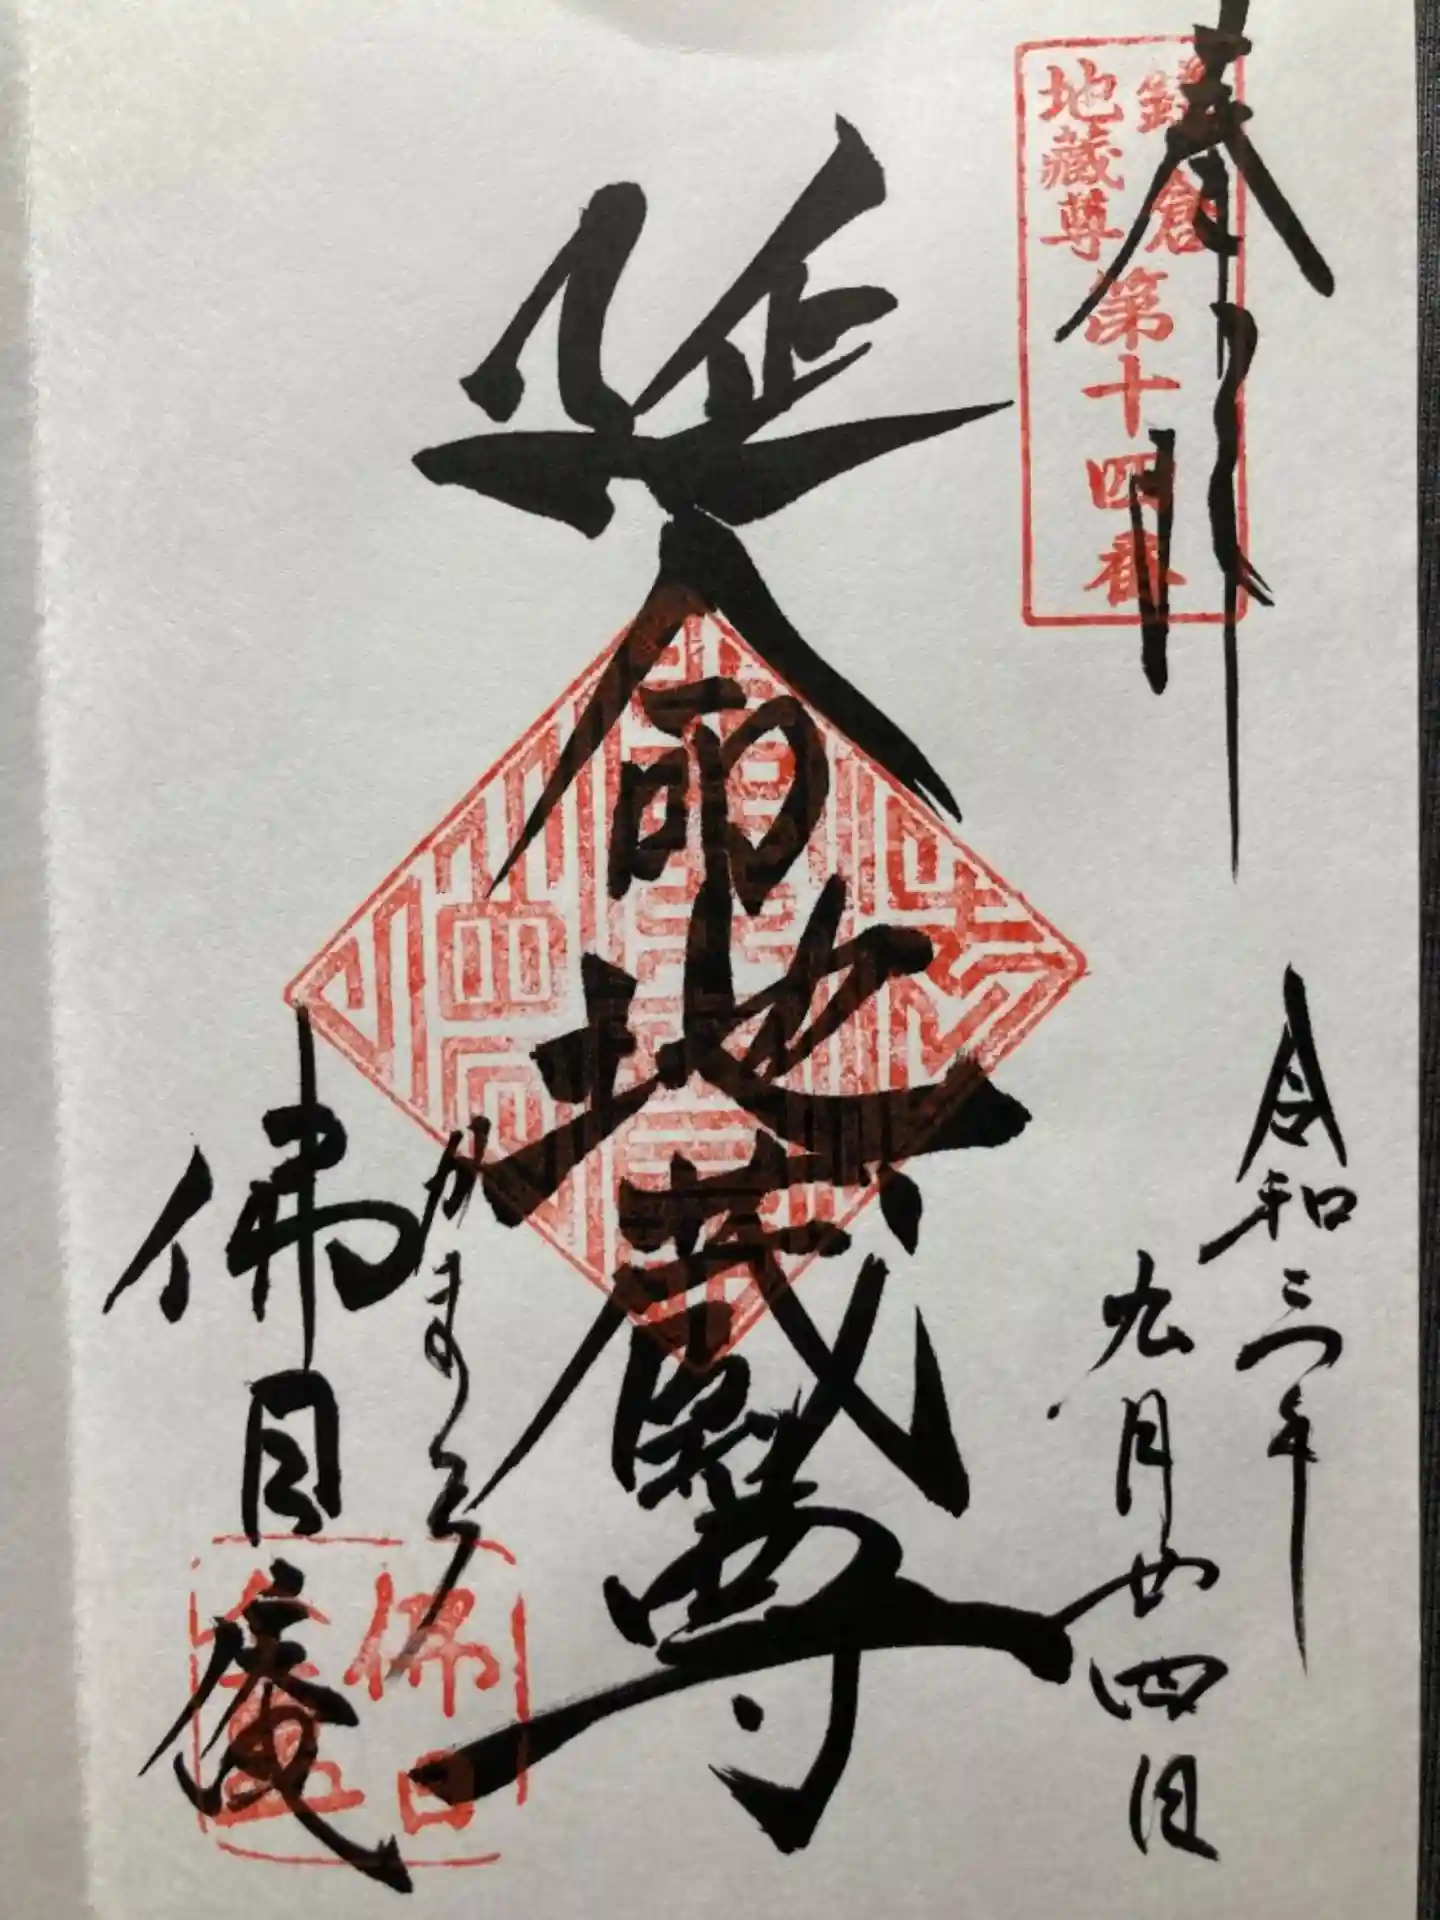 奉拝
鎌倉
地蔵尊
第十四番
令和三年
九月廿四日
延命地蔵尊
かまくら
佛目庵
佛日